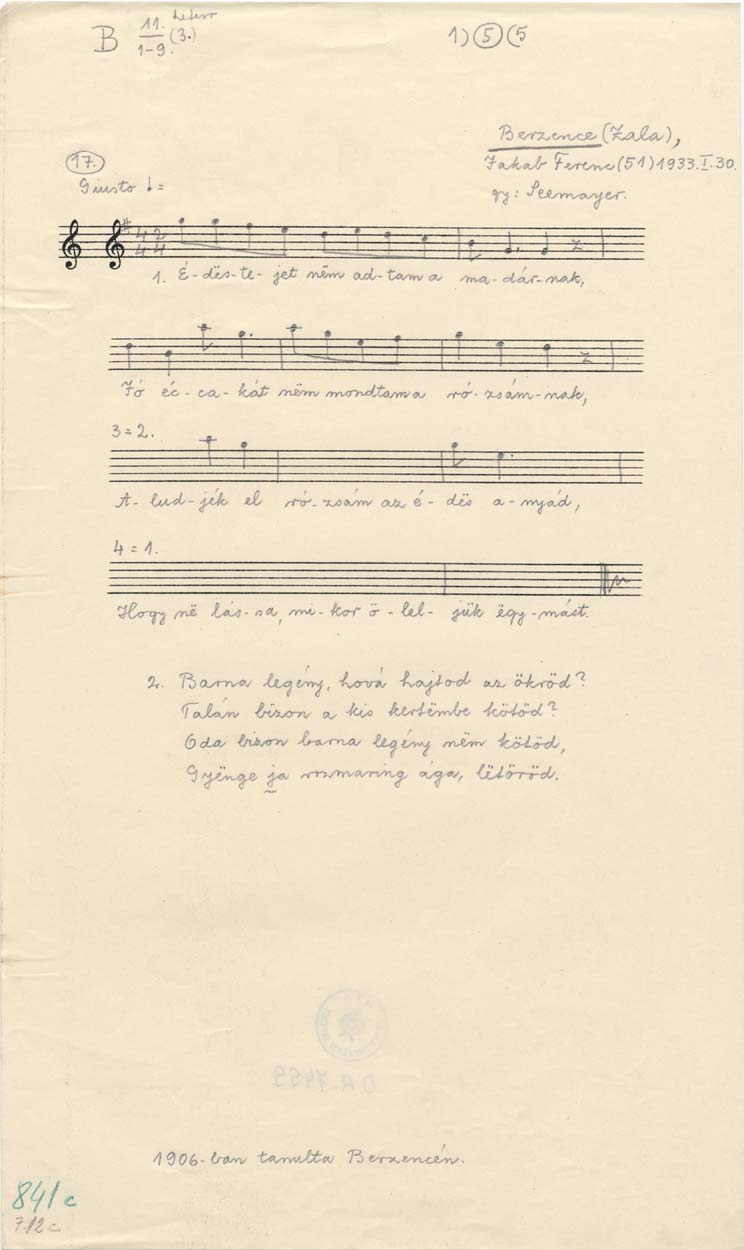 B 11. heterr 1)(5)(5
1-9. (3.)
Berzence (Zala),
17. Jakab Ferenc (51) 1933.I.30.
Giusto ♩= gy: Seemayer.
4 2
4 4
1. É-dës-te-jet nëm ad-tam a ma-dár-nak,
Jó éc-ca-kát nëm mondtam a ró-zsám-nak,
3=2.
A-lud-jék el ró-zsám az é-dës a-nyád,
4=1.
Hogy në lás-sa, mi-kor ö-lel-jük ëgy-mást.
2. Barna legény, hová hajtod az ökröd?
Talán bizon a kis kertëmbe kötöd?
Oda bizon barna legény nëm kötöd,
Gyënge ja rozmaring ága, lëtöröd.
DR. 7499
1906-ban tanulta Berzencén.
841c
712c